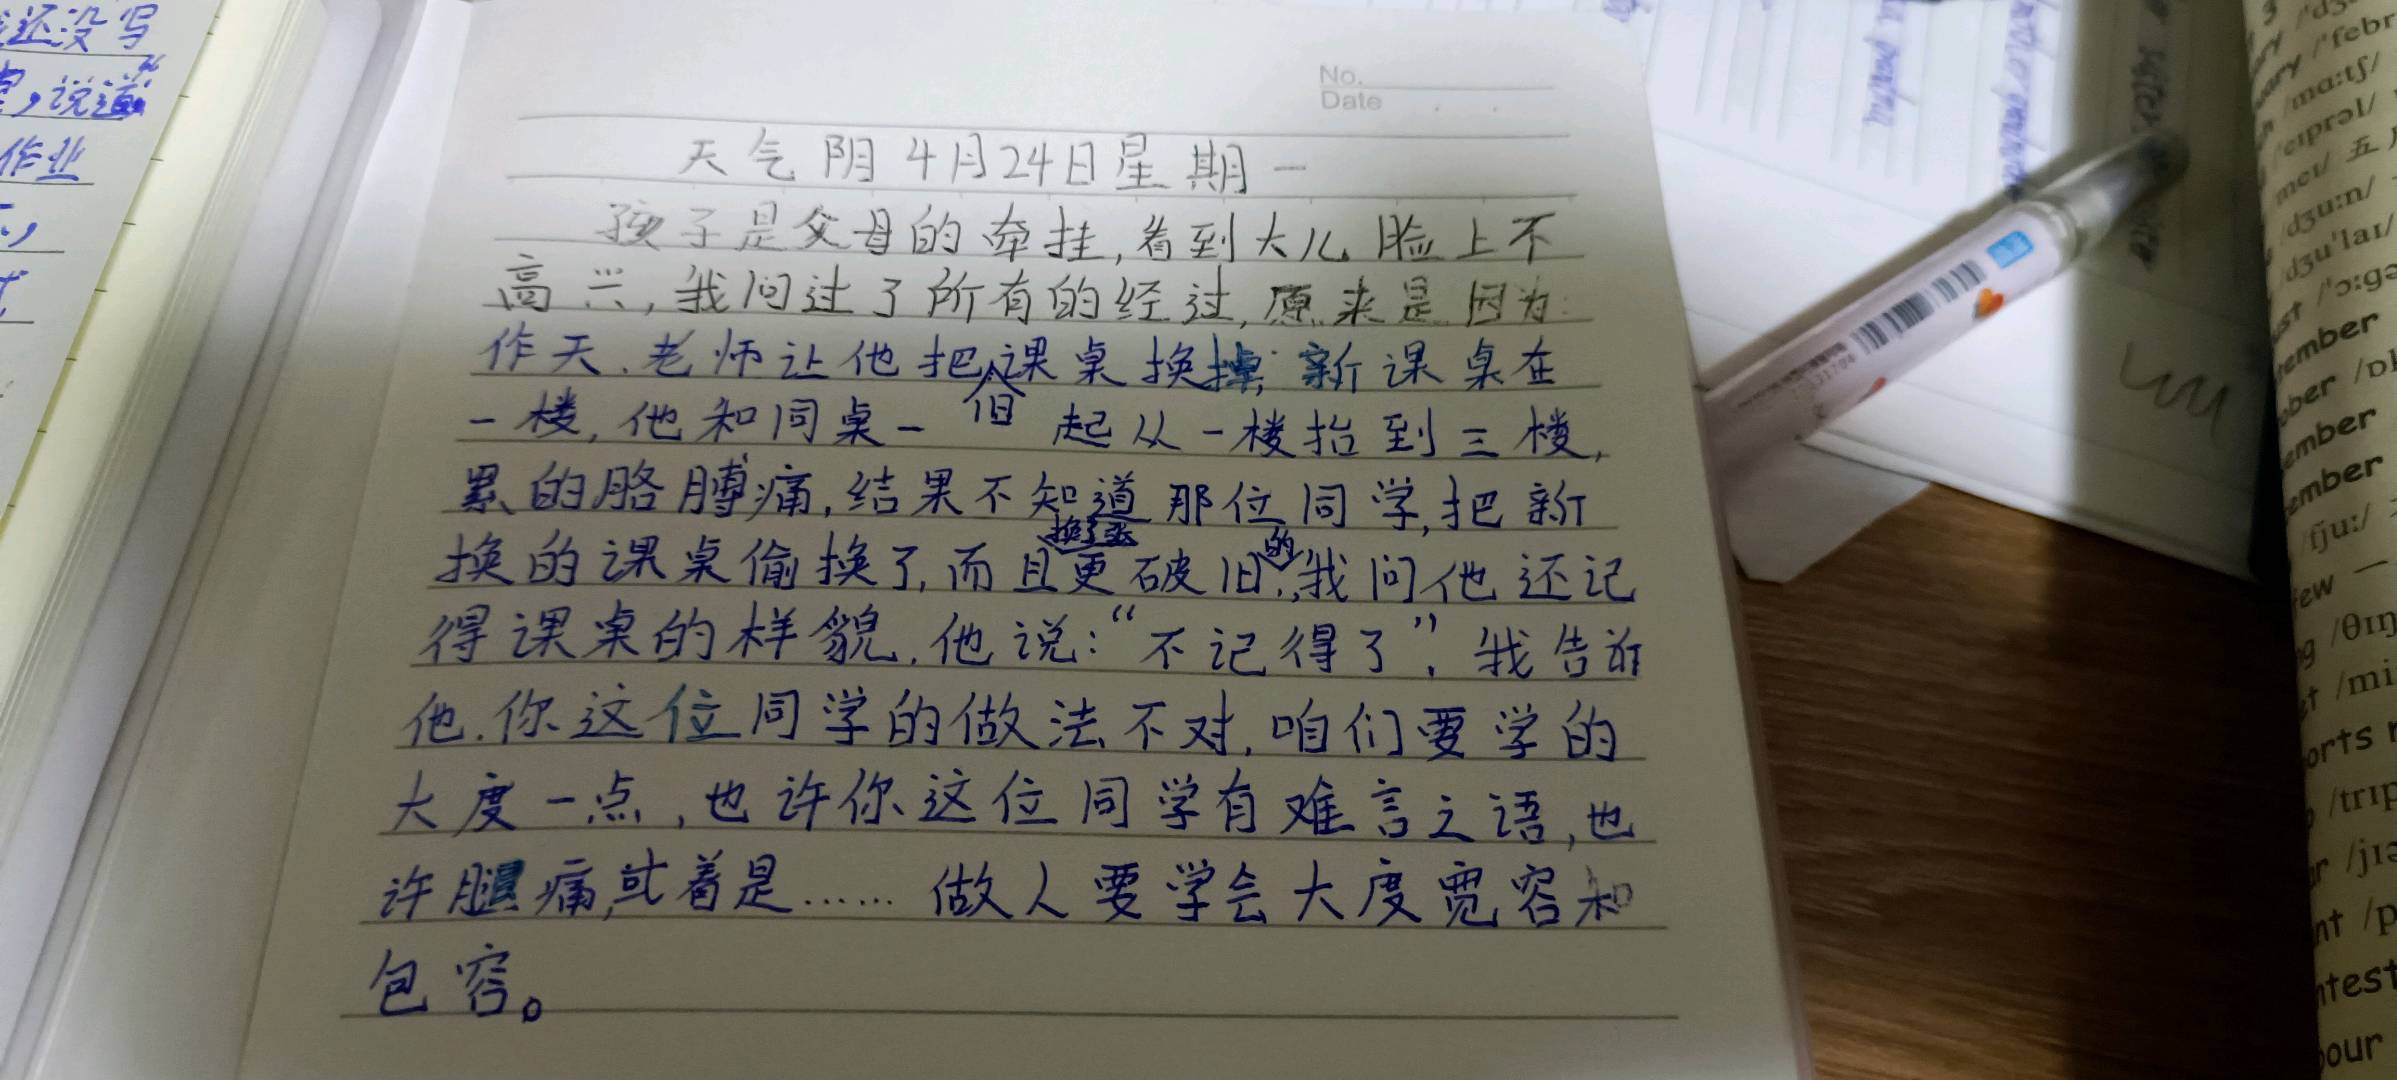 还没写
,说道
作业
No.
Date
天气阴4月24日星期一
孩子是父母的牵挂,看到大儿脸上不
高兴,我问过了所有的经过,原来是因为:
作天.老师让他把课桌换掉,新课桌在
一楼,他和同桌一起从一楼抬到三楼,
但
累的胳膊痛,结果不知道那位同学,把新
换了张
换的课桌偷换了,而且更破旧的,我问他还记
得课桌的样貌.他说:“不记得了”.我告诉
他.你这位同学的做法不对,咱们要学的
大度一点,也许你这位同学有难言之语,也
许腿痛,或着是……做人要学会大度宽容和
包容。
/ˈfebr
/mɑːtʃ/
/eɪprəl/
/meɪ/ 五月
/dʒuːn/
/dʒuˈlaɪ/
/ˈɔːgə
ember
ober /ɒk
ember
ember
few 一
/θɪŋ
/mi
orts
/trɪp
/jɪə
nt /p
ntest
our